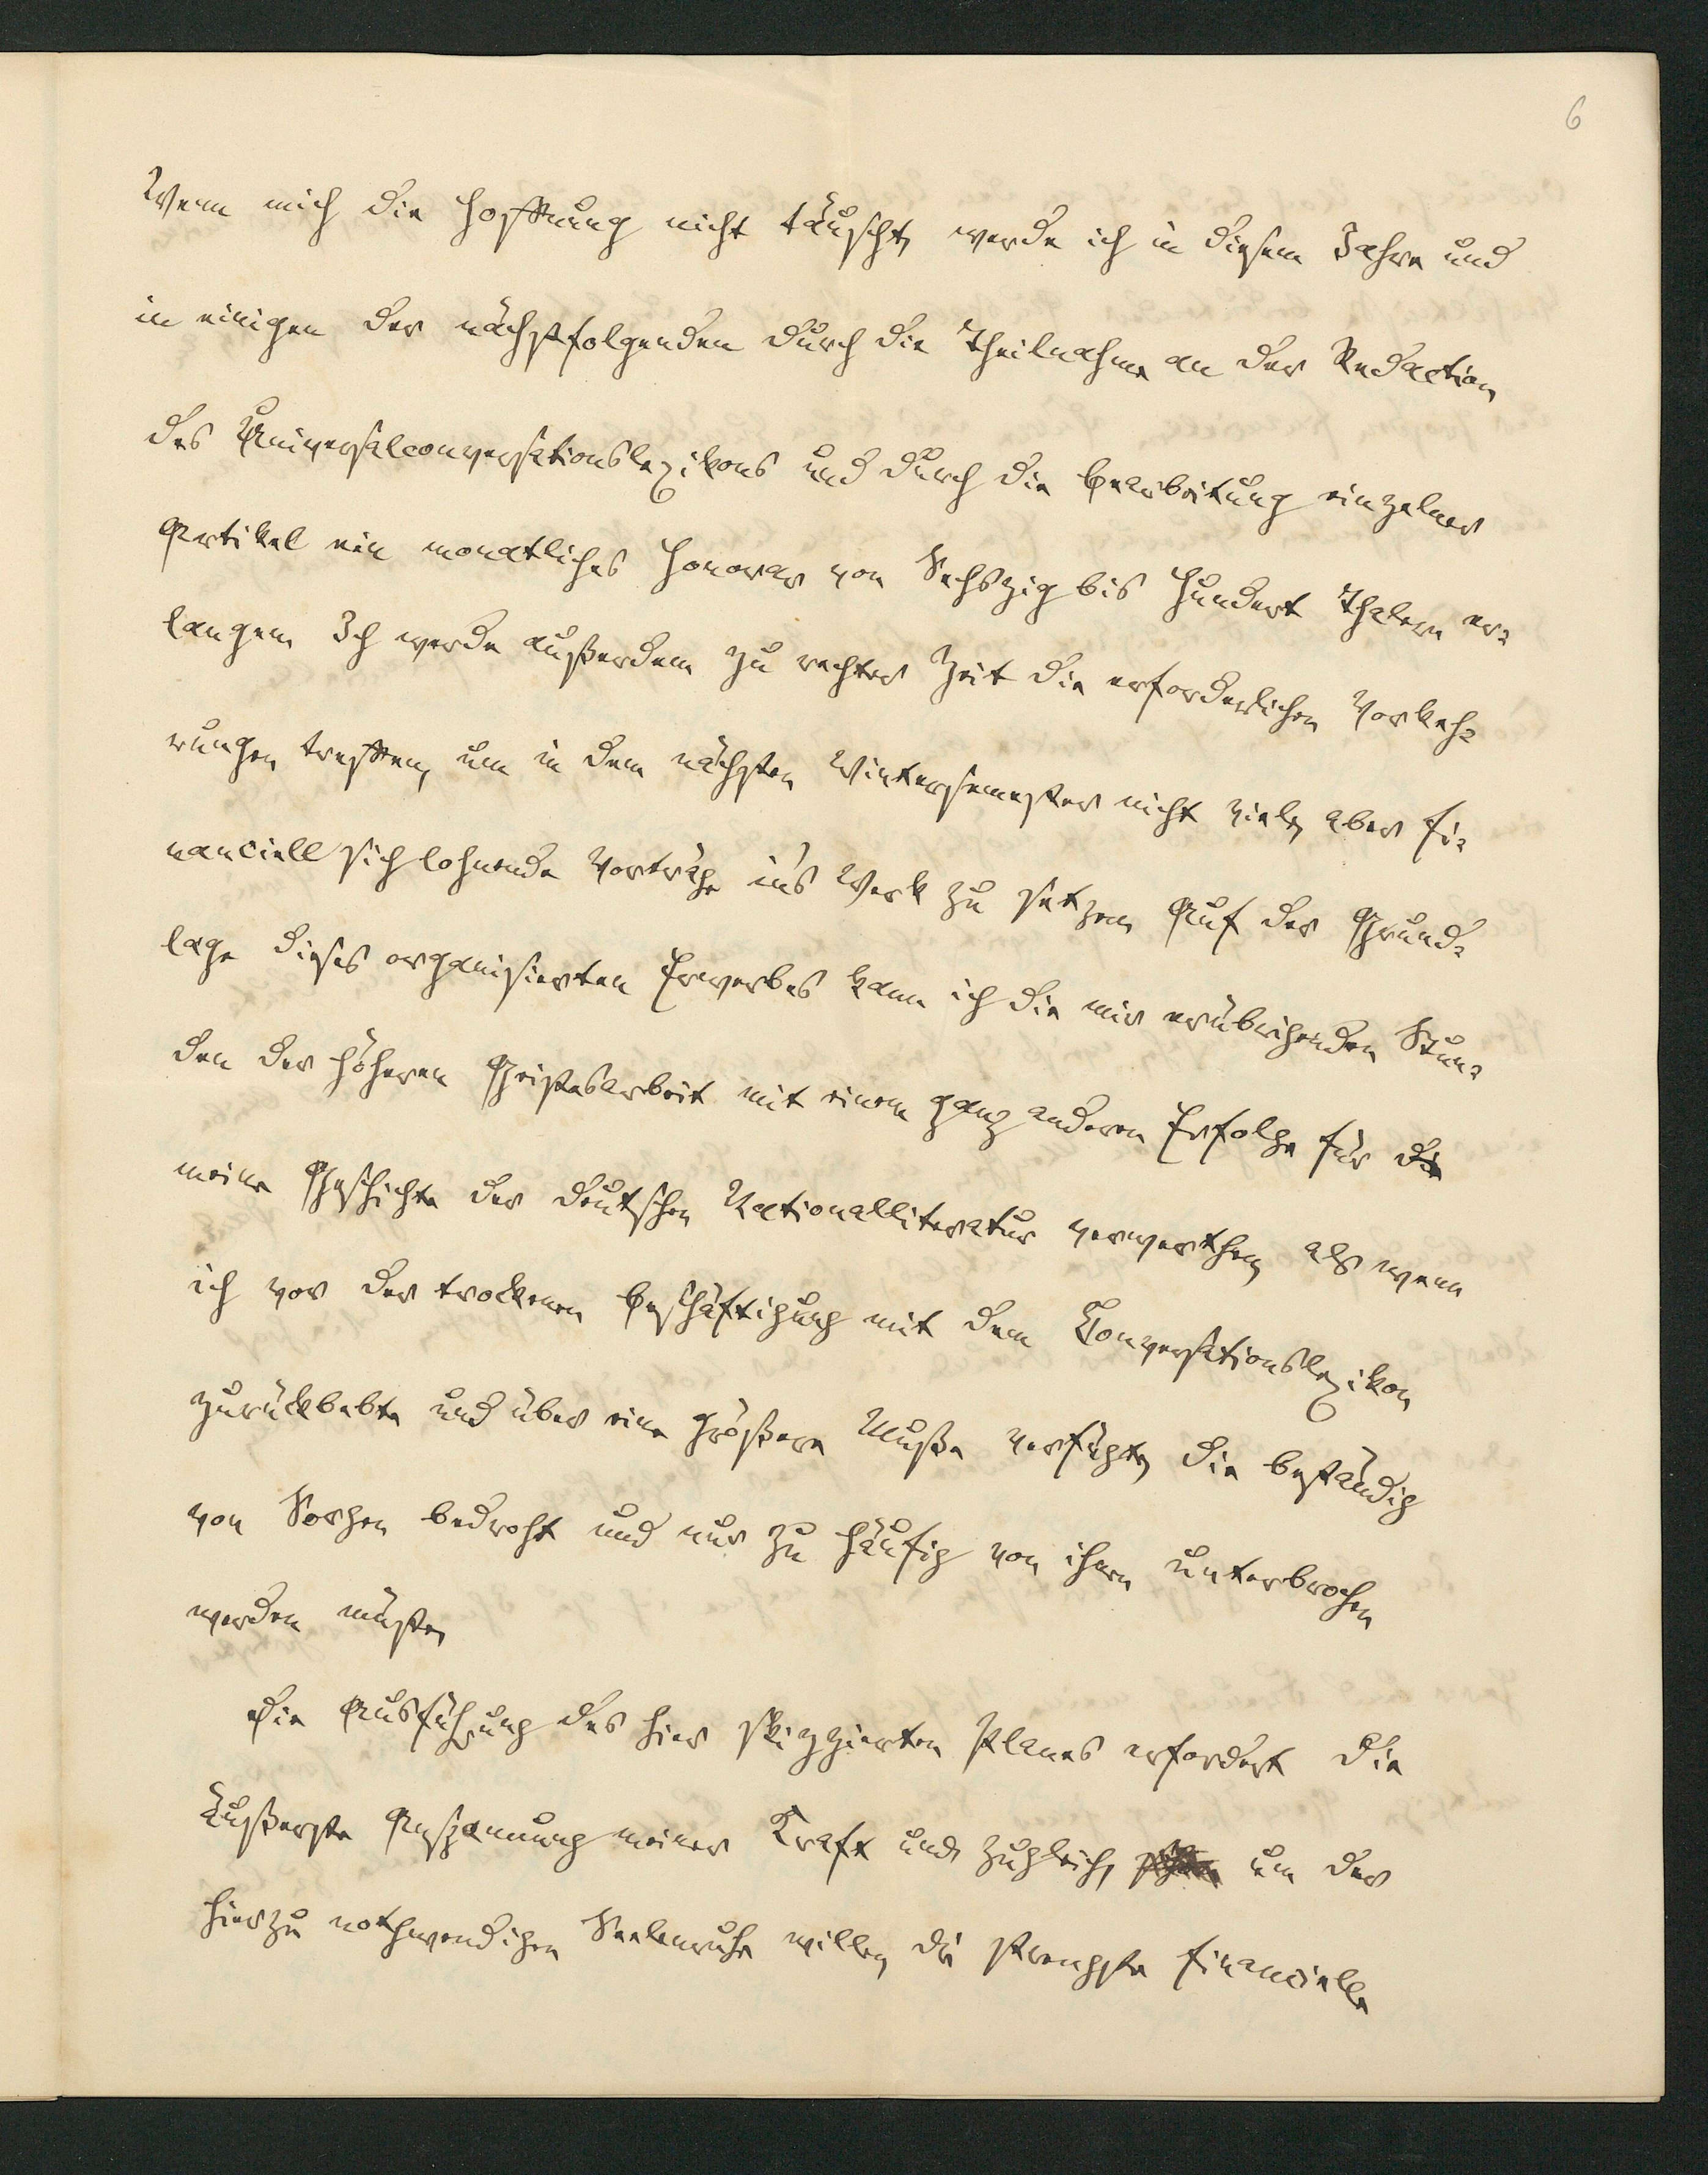 6
Wenn mich die Hoffnung nicht täuscht, werde ich in diesem Jahre und
in einigen der nächstfolgenden durch die Theilnahme an der Redaction
des Universalconversationslexikons und durch die Bearbeitung einzelner
Artikel ein monatliches Honorar von Sechszig bis Hundert Thalern er-
langen. Ich werde außerdem zu rechter Zeit die erforderlichen Vorkeh-
rungen treffen, um in dem nächsten Wintersemester nicht viele, aber fi-
nanciell sich lohnende Vorträge in's Werk zu setzen. Auf der Grund-
lage dieses organisierten Erwerbes kann ich die mir erübrigenden Stun-
den der höheren Geistesarbeit mit einem ganz anderen Erfolge für die
meine Geschichte der deutschen Nationalliteratur verwerthen, als wenn
ich vor der trockenen Beschäftigung mit dem Conversationslexikon
zurückbebte und über eine größere Muße verfügte, die beständig
von Sorgen bedroht und nur zu häufig von ihnen unterbrochen
werden müßte.
Die Ausführung des hier skizzierten Planes erfordert die
äußerste Anspannung meiner Kraft und zugleich, um der
hierzu nothwendigen Seelenruhe willen, die strengste financielle